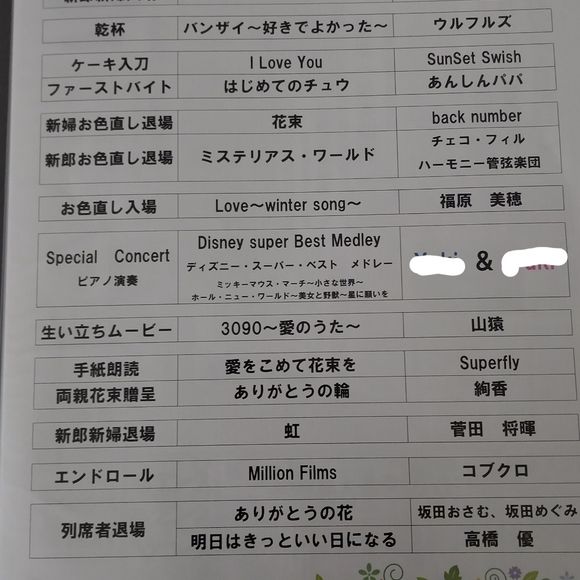 乾杯 バンザイ～好きでよかった～ ウルフルズ
ケーキ入刀 I Love You SunSet Swish
ファーストバイト はじめてのチュウ あんしんパパ
新婦お色直し退場 花束 back number
新郎お色直し退場 ミステリアス・ワールド チェコ・フィル
ハーモニー管弦楽団
お色直し入場 Love～winter song～ 福原 美穂
Special Concert Disney super Best Medley &
ピアノ演奏 ディズニー・スーパー・ベスト メドレー
ミッキーマウス・マーチ～小さな世界～
ホール・ニュー・ワールド～美女と野獣～星に願いを
生い立ちムービー 3090～愛のうた～ 山猿
手紙朗読 愛をこめて花束を Superfly
両親花束贈呈 ありがとうの輪 絢香
新郎新婦退場 虹 菅田 将暉
エンドロール Million Films コブクロ
列席者退場 ありがとうの花 坂田おさむ、坂田めぐみ
明日はきっといい日になる 高橋 優